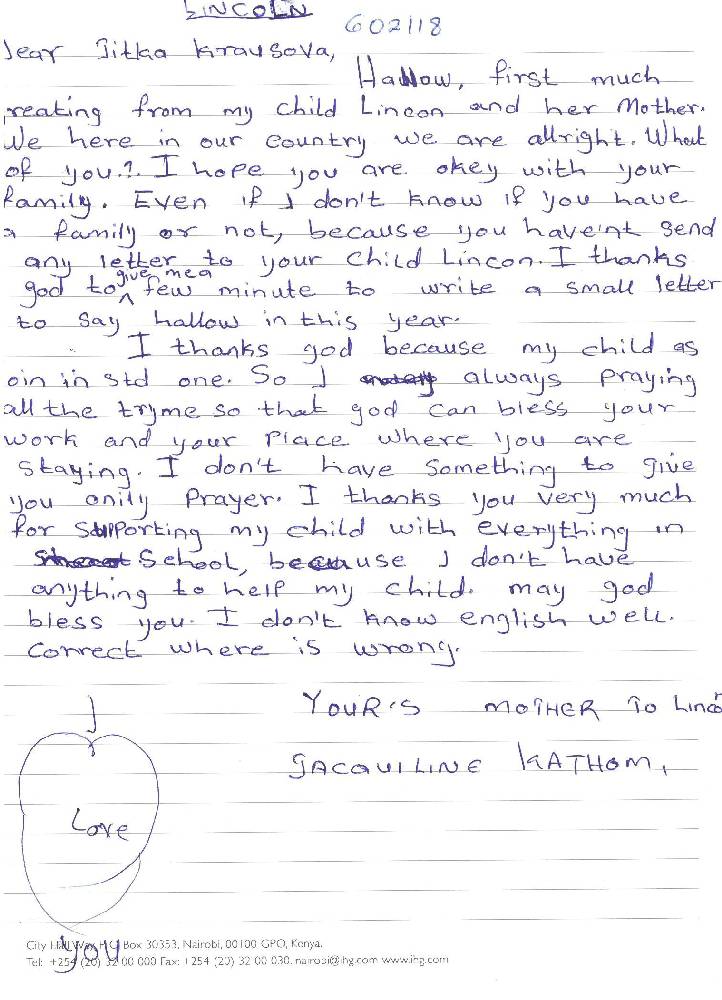 LINCOLN
602118
Dear Jitka Krausova,
Hallow, first much
reating from my child Lincon and her Mother.
We here in our country we are allright. What
of you?. I hope you are okey with your
family. Even if I don't know if you have
a family or not, because you havent send
any letter to your child Lincon. I thanks
god to give me a few minute to write a small letter
to say hallow in this year.
I thanks god because my child as
oin in std one. So I always praying
all the tryme so that god can bless your
work and your place where you are
staying. I don't have something to give
you onily prayer. I thanks you very much
for supporting my child with everything in
School, because I don't have
anything to help my child. may god
bless you. I don't know english well.
correct where is wrong.
YOUR'S MOTHER TO Lincon
JACQUILINE KATHOMI
I
Love
you
City Hall Way, P.O. Box 30353, Nairobi, 00100 GPO, Kenya.
Tel: +254 (20) 32 00 000 Fax: +254 (20) 32 00 030. nairobi@ihg.com www.ihg.com